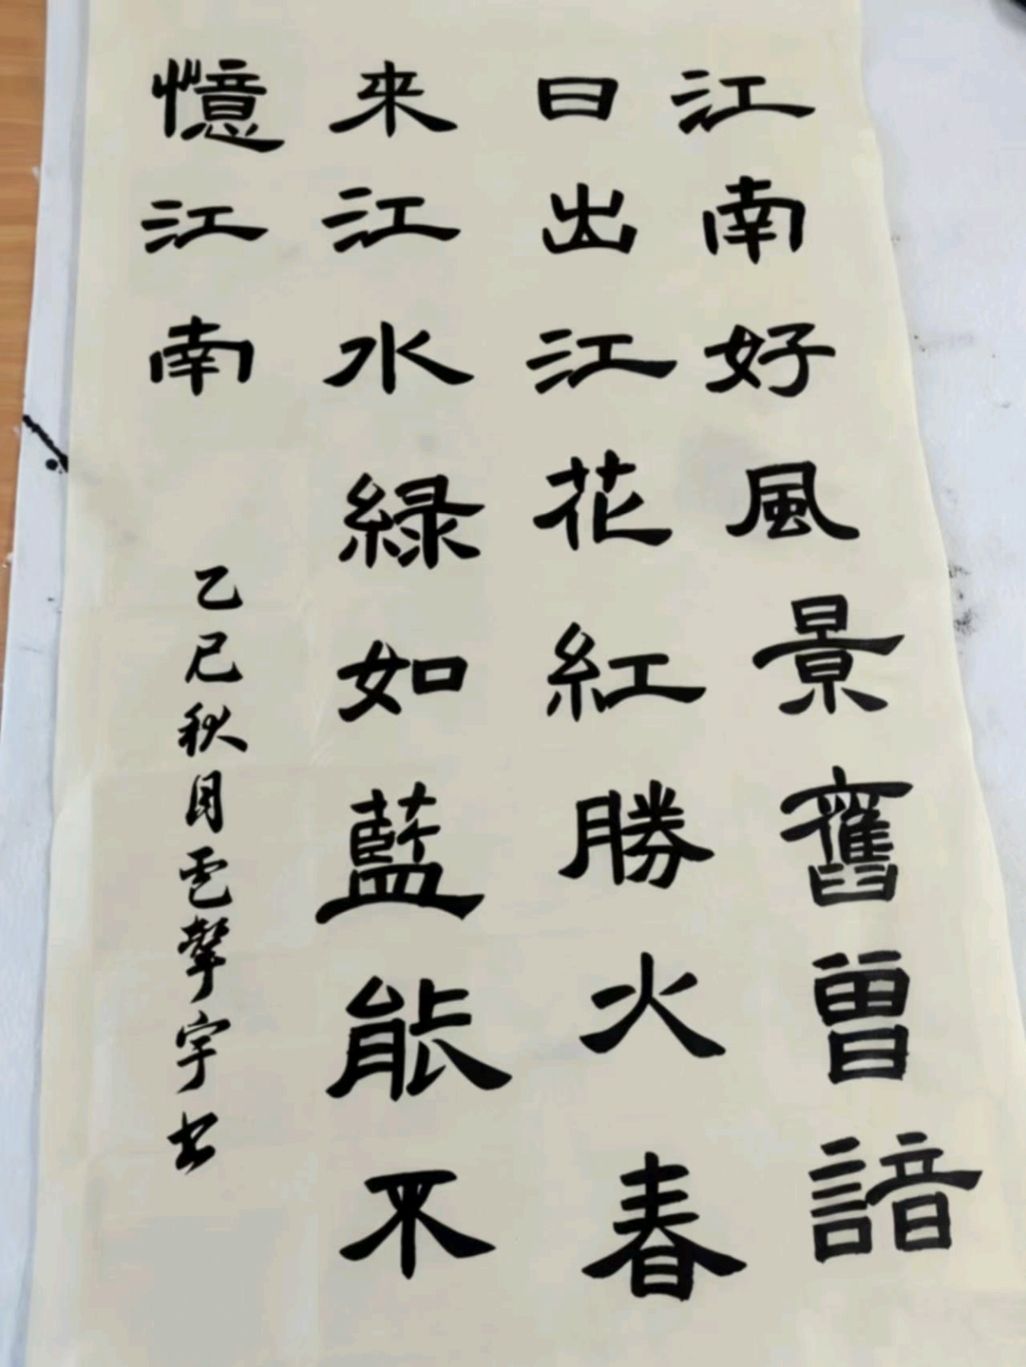 江南好風景舊曾諳
日出江花紅勝火春
來江水緑如藍能不
憶江南
乙巳秋月 宇书